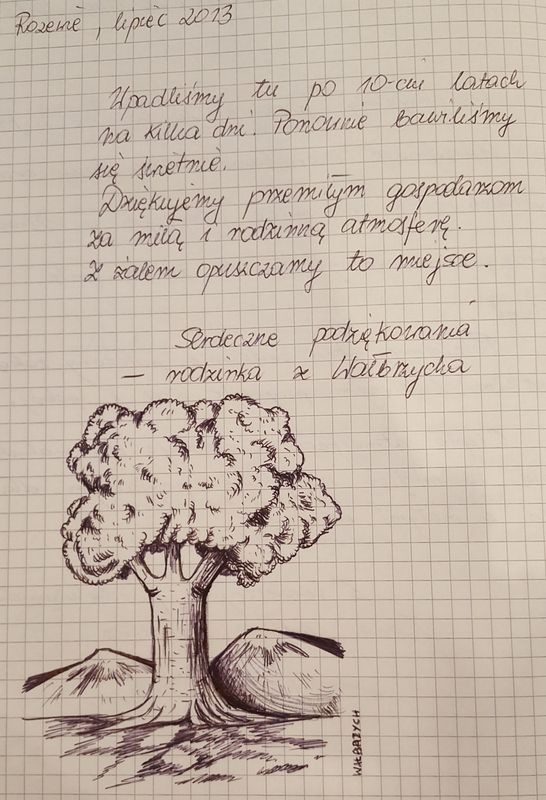 Rozewie, lipiec 2013
Wpadliśmy tu po 10-ciu latach
na kilka dni. Ponownie bawiliśmy
się świetnie.
Dziękujemy przemiłym gospodarzom
za miłą i rodzinną atmosferę.
Z żalem opuszczamy to miejsce.
Serdeczne podziękowania
– rodzinka z Wałbrzycha
WAŁBRZYCH